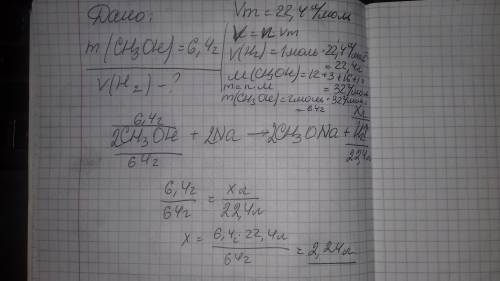 Дано:
m(CH3OH)=6,4г
V(H2)-?
Vm=22,4 л/моль
V=n·Vm
V(H2)=1моль·22,4 л/моль
=22,4л
M(CH3OH)=12+3+16+1=
=32г/моль
m=n·M
m(CH3OH)=2моль·32г/моль
=64г
6,4г xл
2CH3OH + 2Na → 2CH3ONa + H2
64г 22,4л
6,4г/64г = xл/22,4л
x = 6,4г·22,4л/64г = 2,24л